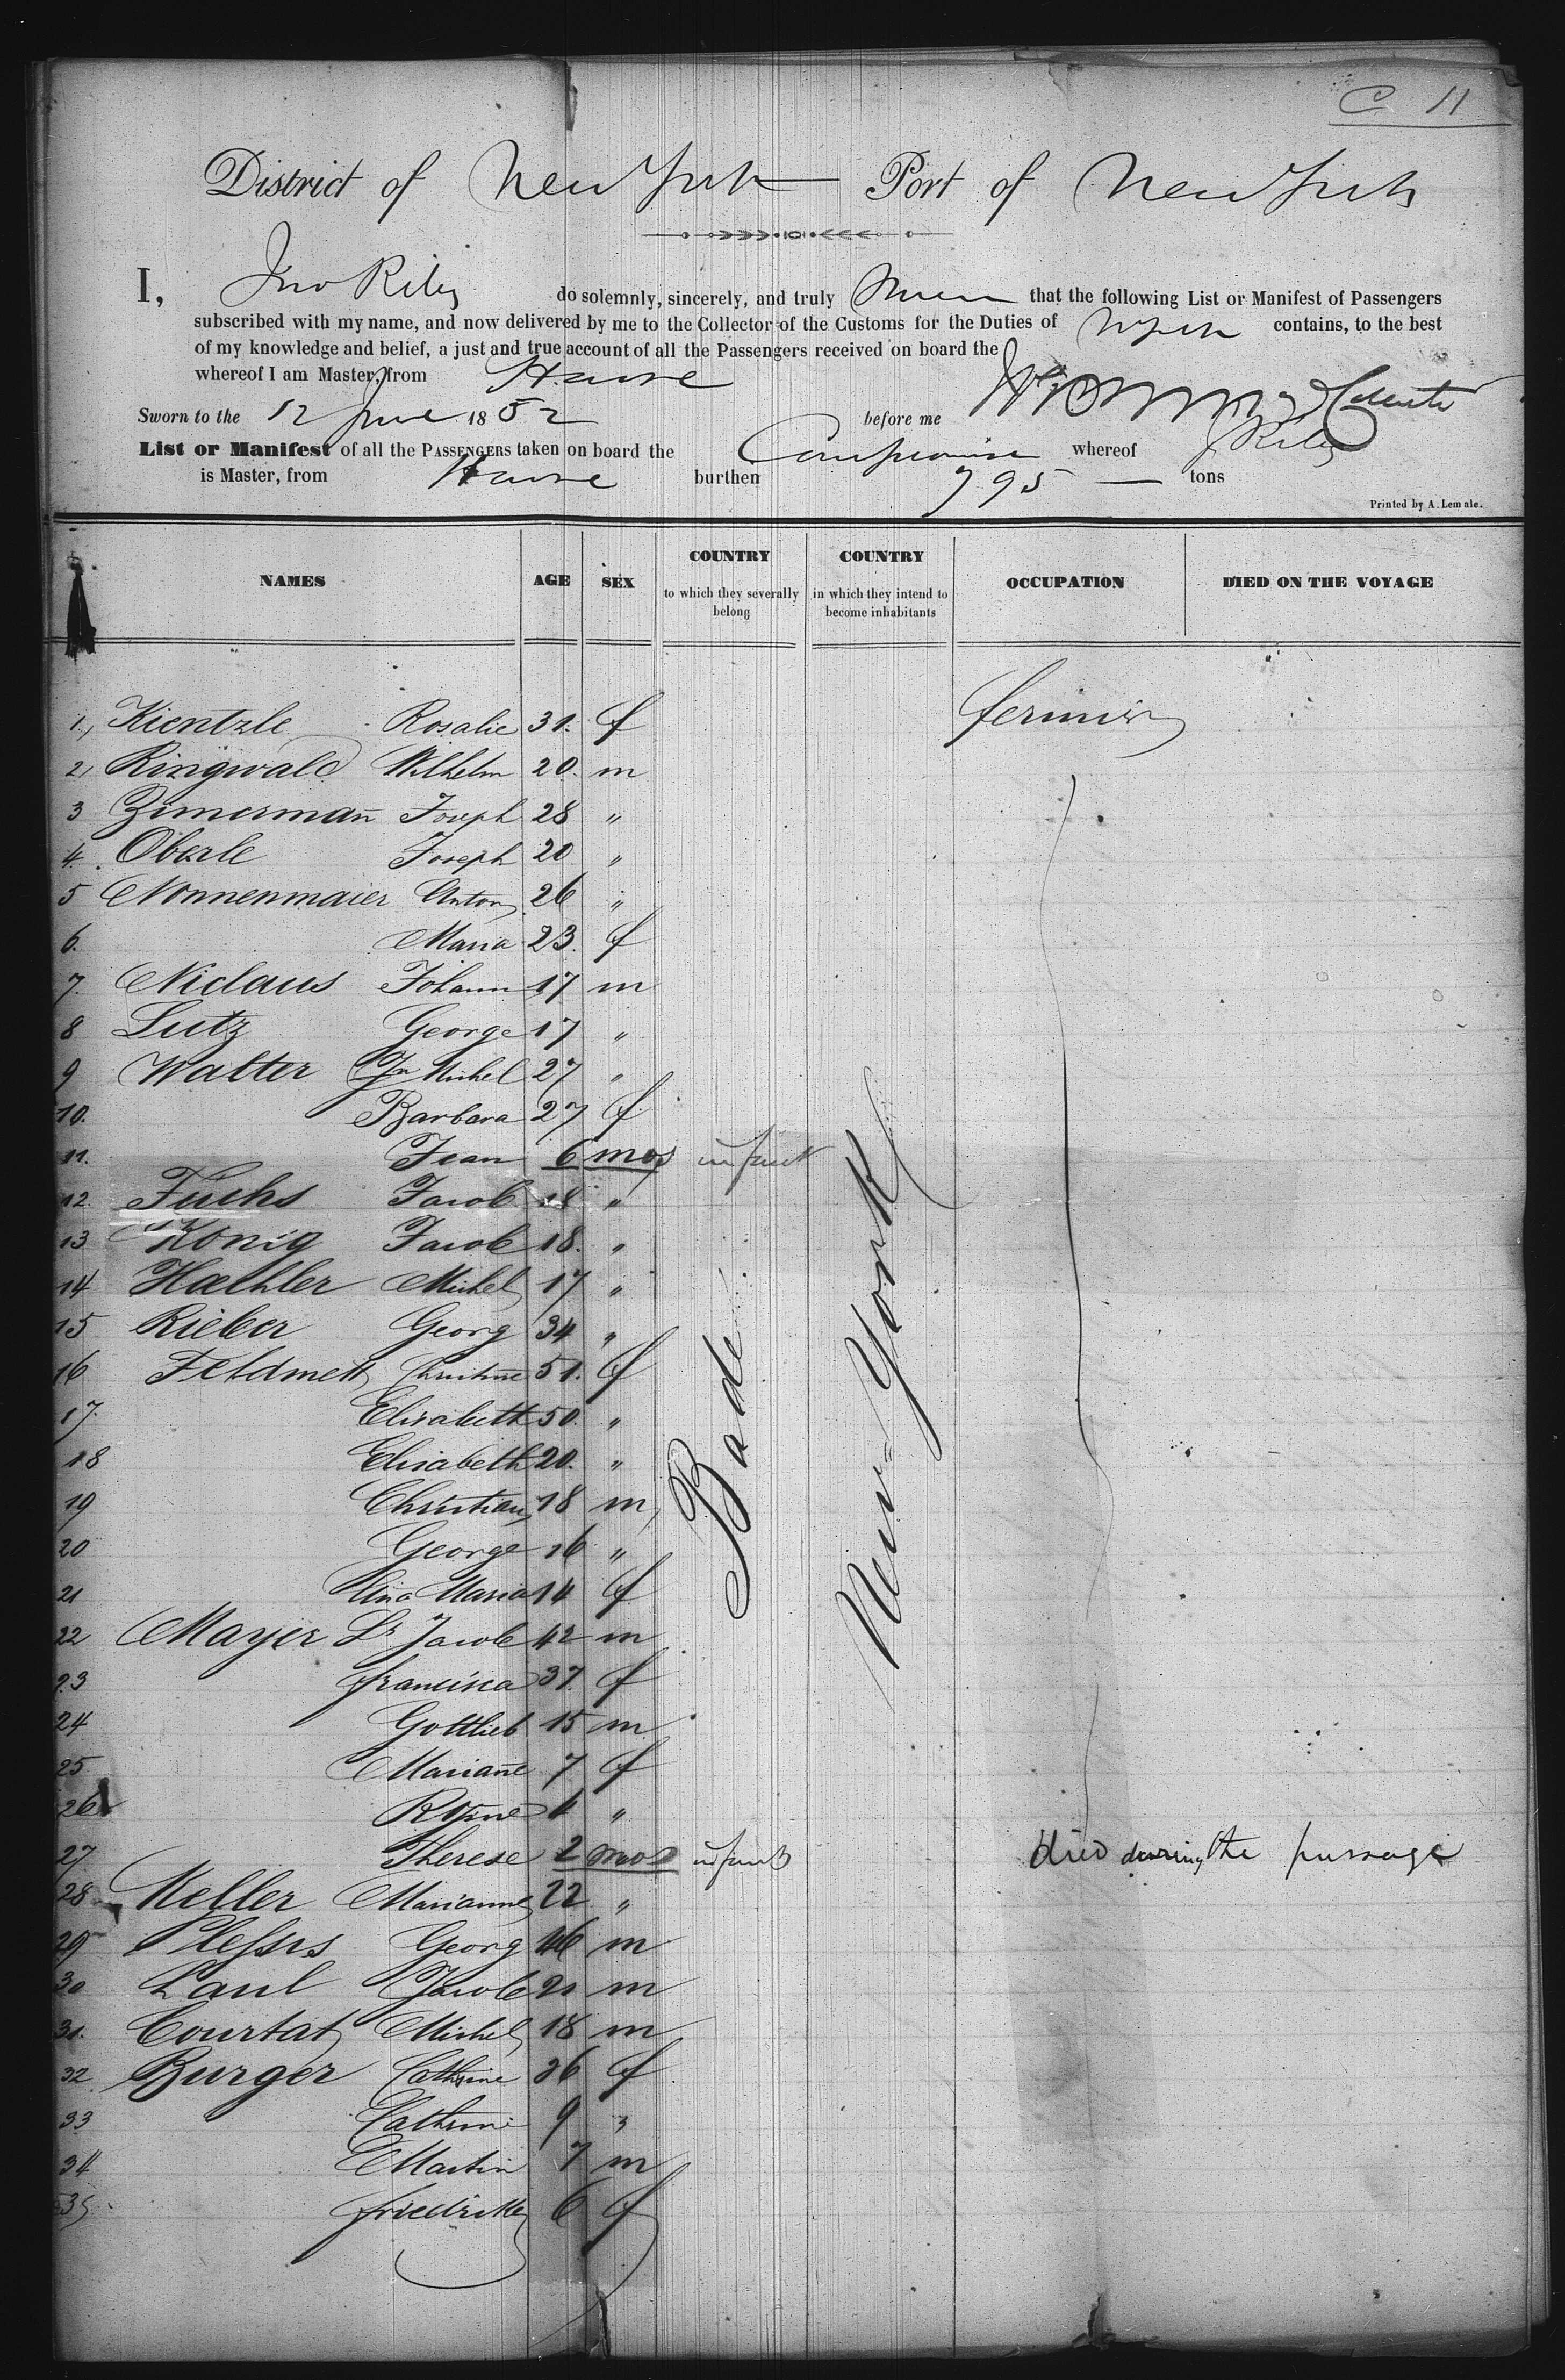 C 11
District of New York Port of New York
I, Jno Riley do solemnly, sincerely, and truly swear that the following List or Manifest of Passengers
subscribed with my name, and now delivered by me to the Collector of the Customs for the Duties of N York contains, to the best
of my knowledge and belief, a just and true account of all the Passengers received on board the
whereof I am Master, from Havre
Sworn to the 12 June 1852 before me
List or Manifest of all the PASSENGERS taken on board the Compromise whereof J Riley
is Master, from Havre burthen 795 tons
Printed by A. Lemale.
NAMES AGE SEX COUNTRY to which they severally belong COUNTRY in which they intend to become inhabitants OCCUPATION DIED ON THE VOYAGE
1., Kientzle Rosalie 31. f fermier
2, Ringwald Wilhelm 20. m
3 Zimermañ Joseph 28 "
4. Oberle Joseph 20 "
5 Nonnenmaier Anton 26 "
6. Maria 23. f
7. Niclaus Johann 17 m
8 Lutz George 17 "
9 Walter Jn Michel 27 "
10. Barbara 27 f
11. Jean 6 mos infant
12. Fuchs Jacob 18 "
13 König Jacob 18. "
14 Haehler Michel 17 "
15 Rieber Georg 34 "
16 Feldmett Christine 51. f
17. Elisabeth 50. "
18 Elisabeth 20. "
19 Christian 18 m
20 George 16 "
21 Maria 14 f
22 Mayer Jacob 42 m
23 francisca 37. f
24 Gottlieb 15 m
25 Mariañe 7 f
26 4 "
27 Therese 2 mos infant died during the passage
28 Keller Marianne 22 "
29 Plessis Georg 46 m
30 Paul Jacob 21 m
31. Courtat Michel 18 m
32 Burger Cathrine 36 f
33 Cathrine 9 "
34 Martin 7 m
35 friedrike 6 f
Bade
New-York